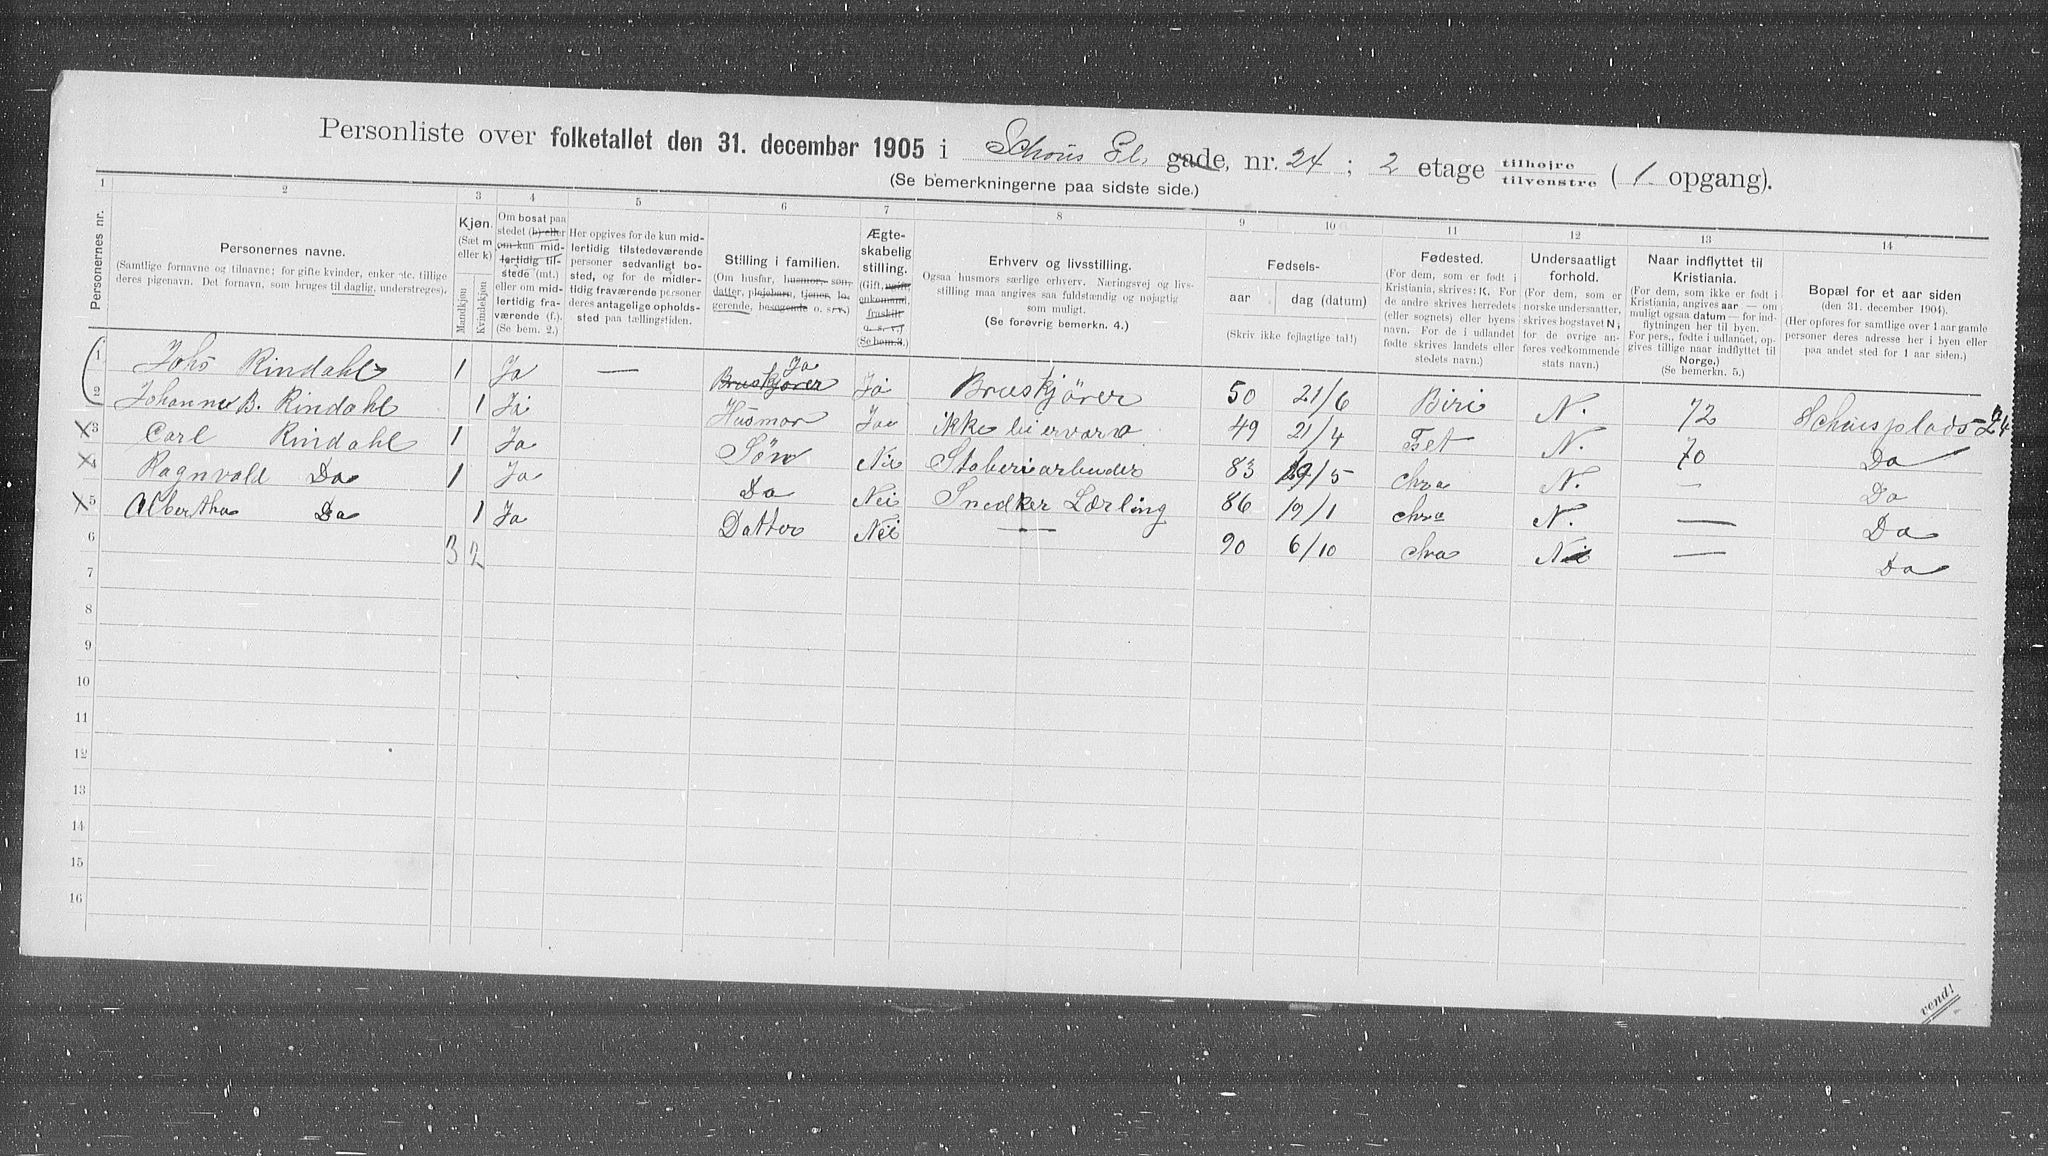 Personliste over folketallet den 31. december 1905 i Schous Pl. gade, nr. 24 ; 2 etage tilhøjre tilvenstre ( 1. opgang).
(Se bemerkningerne paa sidste side.)
1 2 3 4 5 6 7 8 9 10 11 12 13 14
Personernes nr.
Personernes navne.
(Samtlige fornavne og tilnavne; for gifte kvinder, enker etc. tillige
deres pigenavn. Det fornavn, som bruges til daglig, understreges).
Kjøn.
(Sæt m
eller k)
Mandkjøn
Kvindekjøn
Om bosat paa
stedet (b) eller
om kun mid-
lertidig til-
stede (mt.)
eller om mid-
lertidig fra-
værende (f.).
(Se bem. 2.)
Her opgives for de kun mid-
lertidig tilstedeværende
personer sedvanligt bo-
sted, og for de midler-
tidig fraværende personer
deres antagelige opholds-
sted paa tællingstiden.
Stilling i familien.
(Om husfar, husmor, søn,
datter, plejebørn, tjener, lo-
gerende, besøgende o. s. v.)
Ægte-
skabelig
stilling.
(Gift, ugift,
enkemand,
fraskilt
o. s. v.)
(Se bem. 3.)
Erhverv og livsstilling.
Ogsaa husmors særlige erhverv. Næringsvej og livs-
stilling maa angives saa fuldstændig og nøjagtig
som muligt.
(Se forøvrig bemerkn. 4.)
Fødsels-
aar dag (datum)
(Skriv ikke fejlagtige tal!)
Fødested.
(For dem, som er født i
Kristiania, skrives: K. For
de andre skrives herredets
(eller sognets) eller byens
navn. For de i udlandet
fødte skrives landets eller
stedets navn.)
Undersaatligt
forhold.
(For dem, som er
norske undersaatter,
skrives bogstavet N;
for de øvrige an-
føres vedkommende
stats navn.)
Naar indflyttet til
Kristiania.
(For dem, som ikke er født i
Kristiania, angives aar — om
muligt ogsaa datum — for ind-
flytningen her til byen.
For pers., fødte i udlandet, op-
gives tillige naar indflyttet til
Norge.)
(Se bemerkn. 5.)
Bopæl for et aar siden
(den 31. december 1904).
(Her opføres for samtlige over 1 aar gamle
personer deres adresse her i byen eller
paa andet sted for 1 aar siden.)
1 Johs Rindahl 1 Ja — Bruskjører Ja Ja Bruskjører 50 21/6 Biri N. 72 Schousplads 24
2 Johanne B. Rindahl 1 Ja Husmor Ja ikke 49 21/4 Fet N. 70 Do
x3 Carl Rindahl 1 Ja Søn Nei Støberiarbeider 83 /5 Chra N. — Do
x4 Ragnvald Do 1 Ja Do Nei Snedker Lærling 86 19/1 Chra N. — Do
x5 Albertha Do 1 Ja Datter Nei — 90 6/10 Chra N — Do
6 3 2
7
8
9
10
11
12
13
14
15
16
vend!